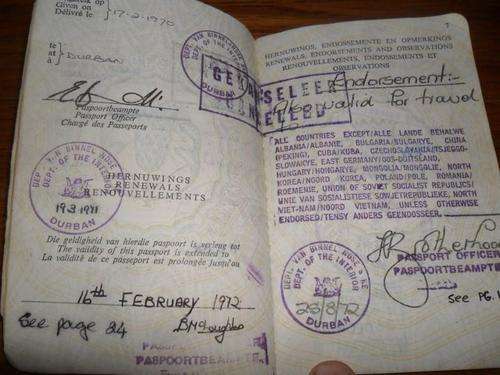 Given on
Délivré le
17-2-1970
te
at
à
DURBAN
Paspoortbeampte
Passport Officer
Chargé des Passeports
HERNUWINGS
RENEWALS
RENOUVELLEMENTS
DEPT. OF THE INTERIOR
19.3.1971
DURBAN
Die geldigheid van hierdie paspoort is verleng tot
The validity of this passport is extended to
La validité de ce passeport est prolongée jusqu'au
16th FEBRUARY 1972
See page 24
PASPOORTBEAMPTE
7
HERNUWINGS, ENDOSSEMENTE EN OPMERKINGS
RENEWALS, ENDORSEMENTS AND OBSERVATIONS
RENOUVELLEMENTS, ENDOSSEMENTS ET
OBSERVATIONS
Endorsement:-
Also valid for travel
ALL COUNTRIES EXCEPT/ALLE LANDE BEHALWE
ALBANIA/ALBANIE, BULGARIA/BULGARYE, CHINA
(PEKING), CUBA/KUBA, CZECHOSLOVAKIA/TSJEGGO-
SLOWAKYE, EAST GERMANY/OOS-DUITSLAND,
HUNGARY/HONGARYE, MONGOLIA/MONGOLIE, NORTH
KOREA/NOORD KOREA, POLAND/POLE, ROMANIA/
ROEMENIE, UNION OF SOVIET SOCIALIST REPUBLICS/
UNIE VAN SOSIALISTIESE, SOWJETREPUBLIEKE, NORTH
VIET-NAM/NOORD VIETNAM, UNLESS OTHERWISE
ENDORSED/TENSY ANDERS GEENDOSSEER.
PASSPORT OFFICER
PASPOORTBEAMPTE
DEPT. OF THE INTERIOR
23/8/72
DURBAN
See PG.